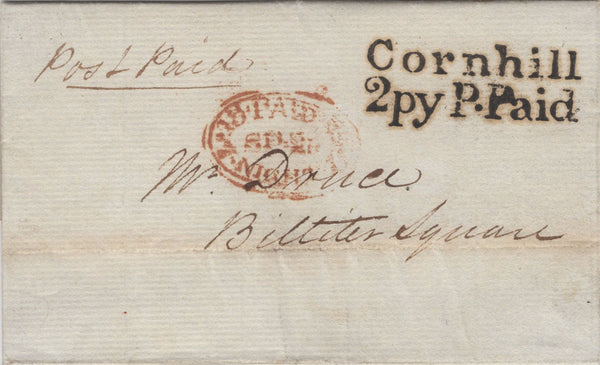 Post Paid
Cornhill
2py P.Paid
PAID
SP
NIGHT
Mr. Druce.
Billiter Square